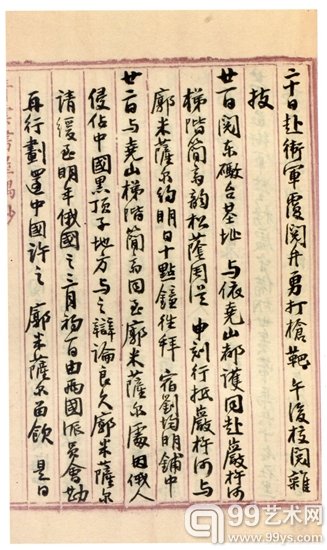 二十日赴衛軍覆閱弁勇打槍靶午後校閱雜
技
廿一日閱东礮台基址 与依堯山都護同赴巖杵河
梯階簡高韵松蔭同 申刻行抵巖杵河与
廓米薩尔約明日十點鐘往拜 宿劉均明鋪中
廿二日与堯山梯階簡高同至廓米薩尔處因俄人
侵佔中國黑頂子地方与之辯論良久廓米薩尔
請緩至明年俄國之三月初一日由兩國派員會勘
再行劃還中國許之 廓米薩尔留飲 是日
99艺术网
99ys.com